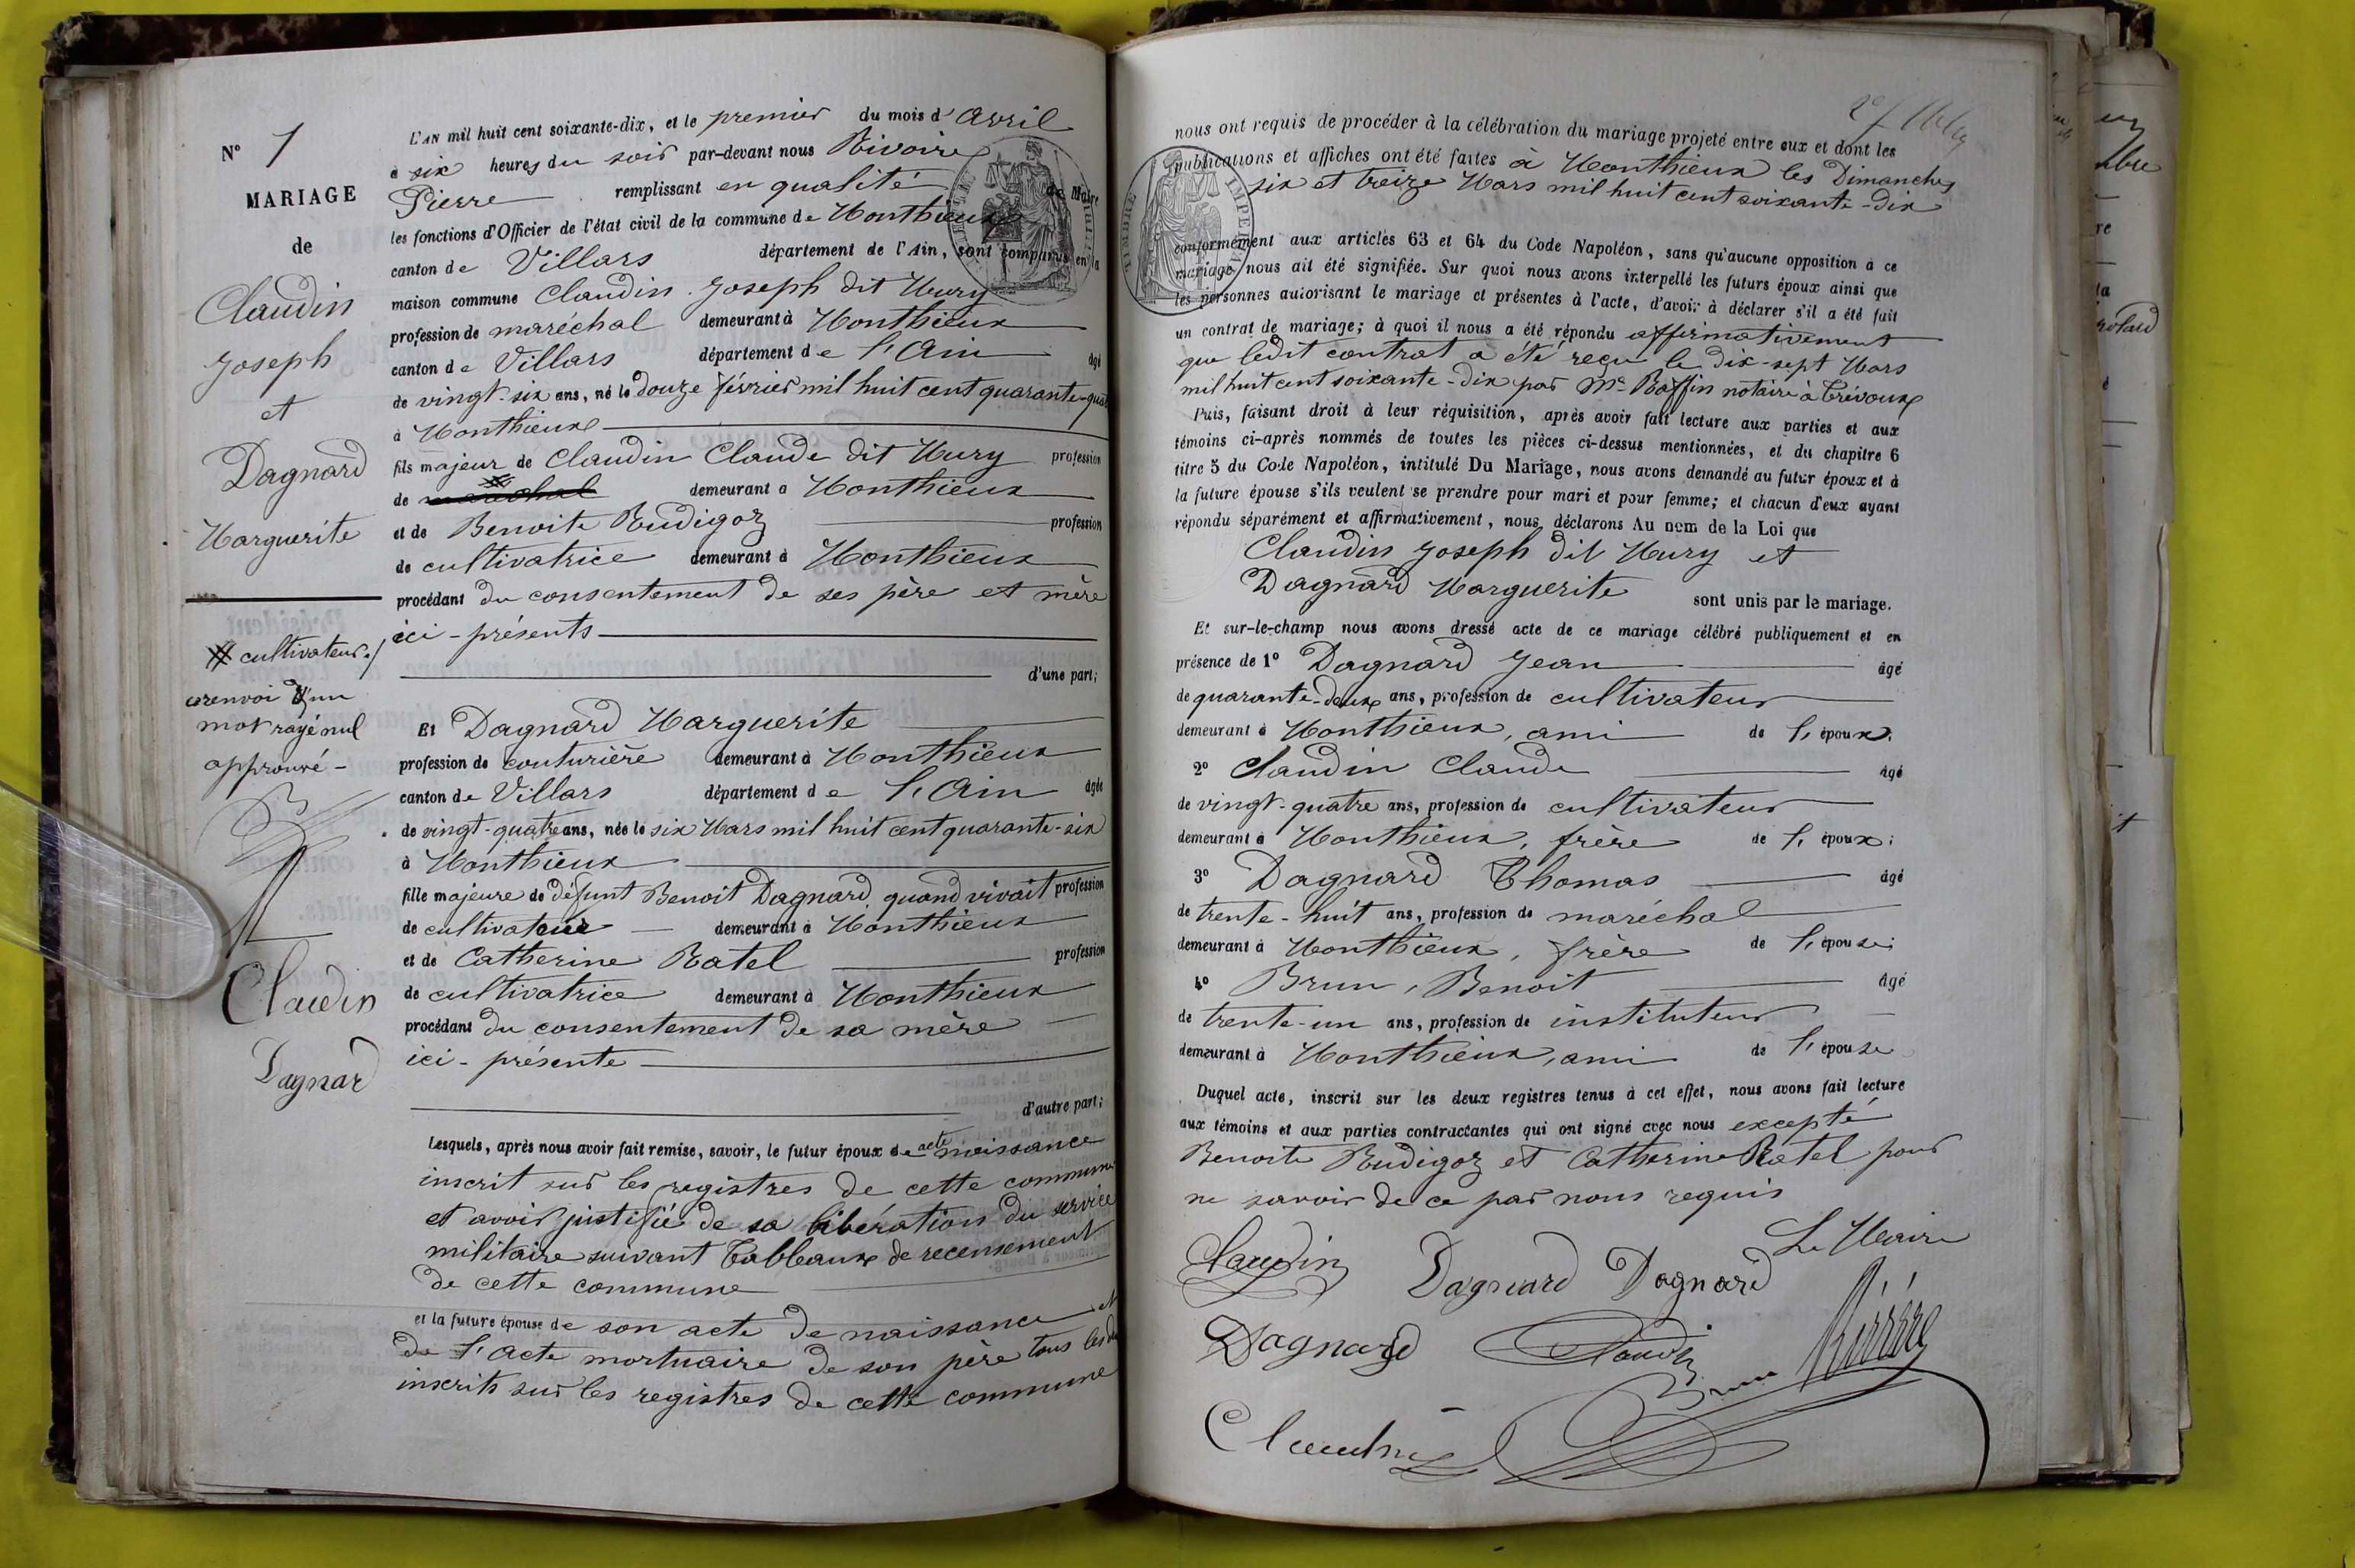 N° 1
MARIAGE
de
Claudin
Joseph
et
Dagnard
Marguerite
cultivateur./
renvoi d'un
mot rayé nul
approuvé -
Claudin
Dagnard
L'AN mil huit cent soixante-dix, et le premier du mois d'Avril
à six heures du soir par-devant nous Rivoire
Pierre remplissant en qualité de Maire
les fonctions d'Officier de l'état civil de la commune de Monthieux
canton de Villars département de l'Ain, sont comparus en la
maison commune Claudin Joseph dit Mury
profession de maréchal demeurant à Monthieux
canton de Villars département de l'Ain âgé
de vingt-six ans, né le douze février mil huit cent quarante-quat
à Monthieux
fils majeur de Claudin Claude dit Mury profession
de maréchal demeurant à Monthieux
et de Benoite Rudigoz profession
de cultivatrice demeurant à Monthieux
procédant du consentement de ses père et mère
ici-présents
d'une part;
Et Dagnard Marguerite
profession de couturière demeurant à Monthieux
canton de Villars département de l'Ain âgée
de vingt-quatre ans, née le six Mars mil huit cent quarante-six
à Monthieux
fille majeure de défunt Benoit Dagnard, quand vivait profession
de cultivateur demeurant à Monthieux
et de Catherine Ratel profession
de cultivatrice demeurant à Monthieux
procédant du consentement de sa mère
ici-présente
d'autre part;
Lesquels, après nous avoir fait remise, savoir, le futur époux de acte naissance
inscrit sur les registres de cette commune
et avoir justifié de sa libération du service
militaire suivant Tableaux de recensement
de cette commune
et la future épouse de son acte de naissance et
de l'acte mortuaire de son père tous les d
inscrits sur les registres de cette commune
nous ont requis de procéder à la célébration du mariage projeté entre eux et dont les
publications et affiches ont été faites à Monthieux les Dimanches
six et treize Mars mil huit cent soixante-dix
TIMBRE IMPERIAL
conformément aux articles 63 et 64 du Code Napoléon, sans qu'aucune opposition à ce
mariage nous ait été signifiée. Sur quoi nous avons interpellé les futurs époux ainsi que
les personnes autorisant le mariage et présentes à l'acte, d'avoir à déclarer s'il a été fait
un contrat de mariage; à quoi il nous a été répondu affirmativement
que ledit contrat a été reçu le dix-sept Mars
mil huit cent soixante-dix par Me Baffin notaire à Trévoux
Puis, faisant droit à leur réquisition, après avoir fait lecture aux parties et aux
témoins ci-après nommés de toutes les pièces ci-dessus mentionnées, et du chapitre 6
titre 5 du Code Napoléon, intitulé Du Mariage, nous avons demandé au futur époux et à
la future épouse s'ils veulent se prendre pour mari et pour femme; et chacun d'eux ayant
répondu séparément et affirmativement, nous déclarons Au nom de la Loi que
Claudin Joseph dit Mury et
Dagnard Marguerite sont unis par le mariage.
Et sur-le-champ nous avons dressé acte de ce mariage célébré publiquement et en
présence de 1° Dagnard Jean âgé
de quarante-deux ans, profession de cultivateur
demeurant à Monthieux, ami de l'époux;
2° Claudin Claude âgé
de vingt-quatre ans, profession de cultivateur
demeurant à Monthieux, frère de l'époux;
3° Dagnard Thomas âgé
de trente-huit ans, profession de maréchal
demeurant à Monthieux, frère de l'épouse;
4° Brun, Benoit âgé
de trente-un ans, profession de instituteur
demeurant à Monthieux, ami de l'épouse
Duquel acte, inscrit sur les deux registres tenus à cet effet, nous avons fait lecture
aux témoins et aux parties contractantes qui ont signé avec nous excepté
Benoite Rudigoz et Catherine Ratel pour
ne savoir de ce par nous requis
Le Maire
Claudin Dagnard Dagnard
Dagnard Claudin Brun Rivoire
Claudin